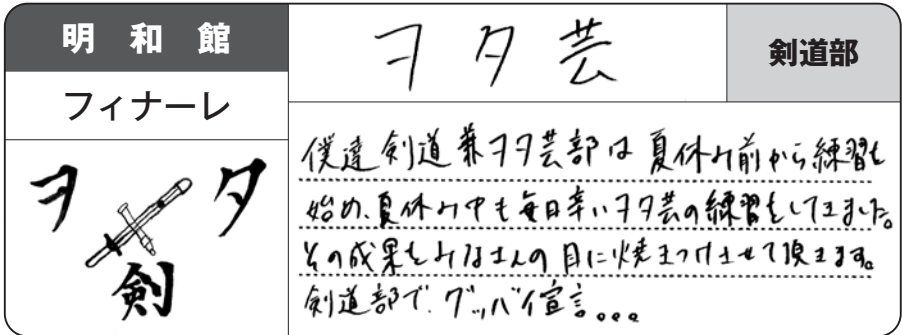 明和館
フィナーレ
ヲタ芸
剣道部
ヲ タ
剣
僕達剣道兼ヲタ芸部は夏休み前から練習を
始め、夏休み中も毎日辛いヲタ芸の練習をしてきました。
その成果をみなさんの目に焼きつけさせて頂きます。
剣道部で、グッバイ宣言。。。